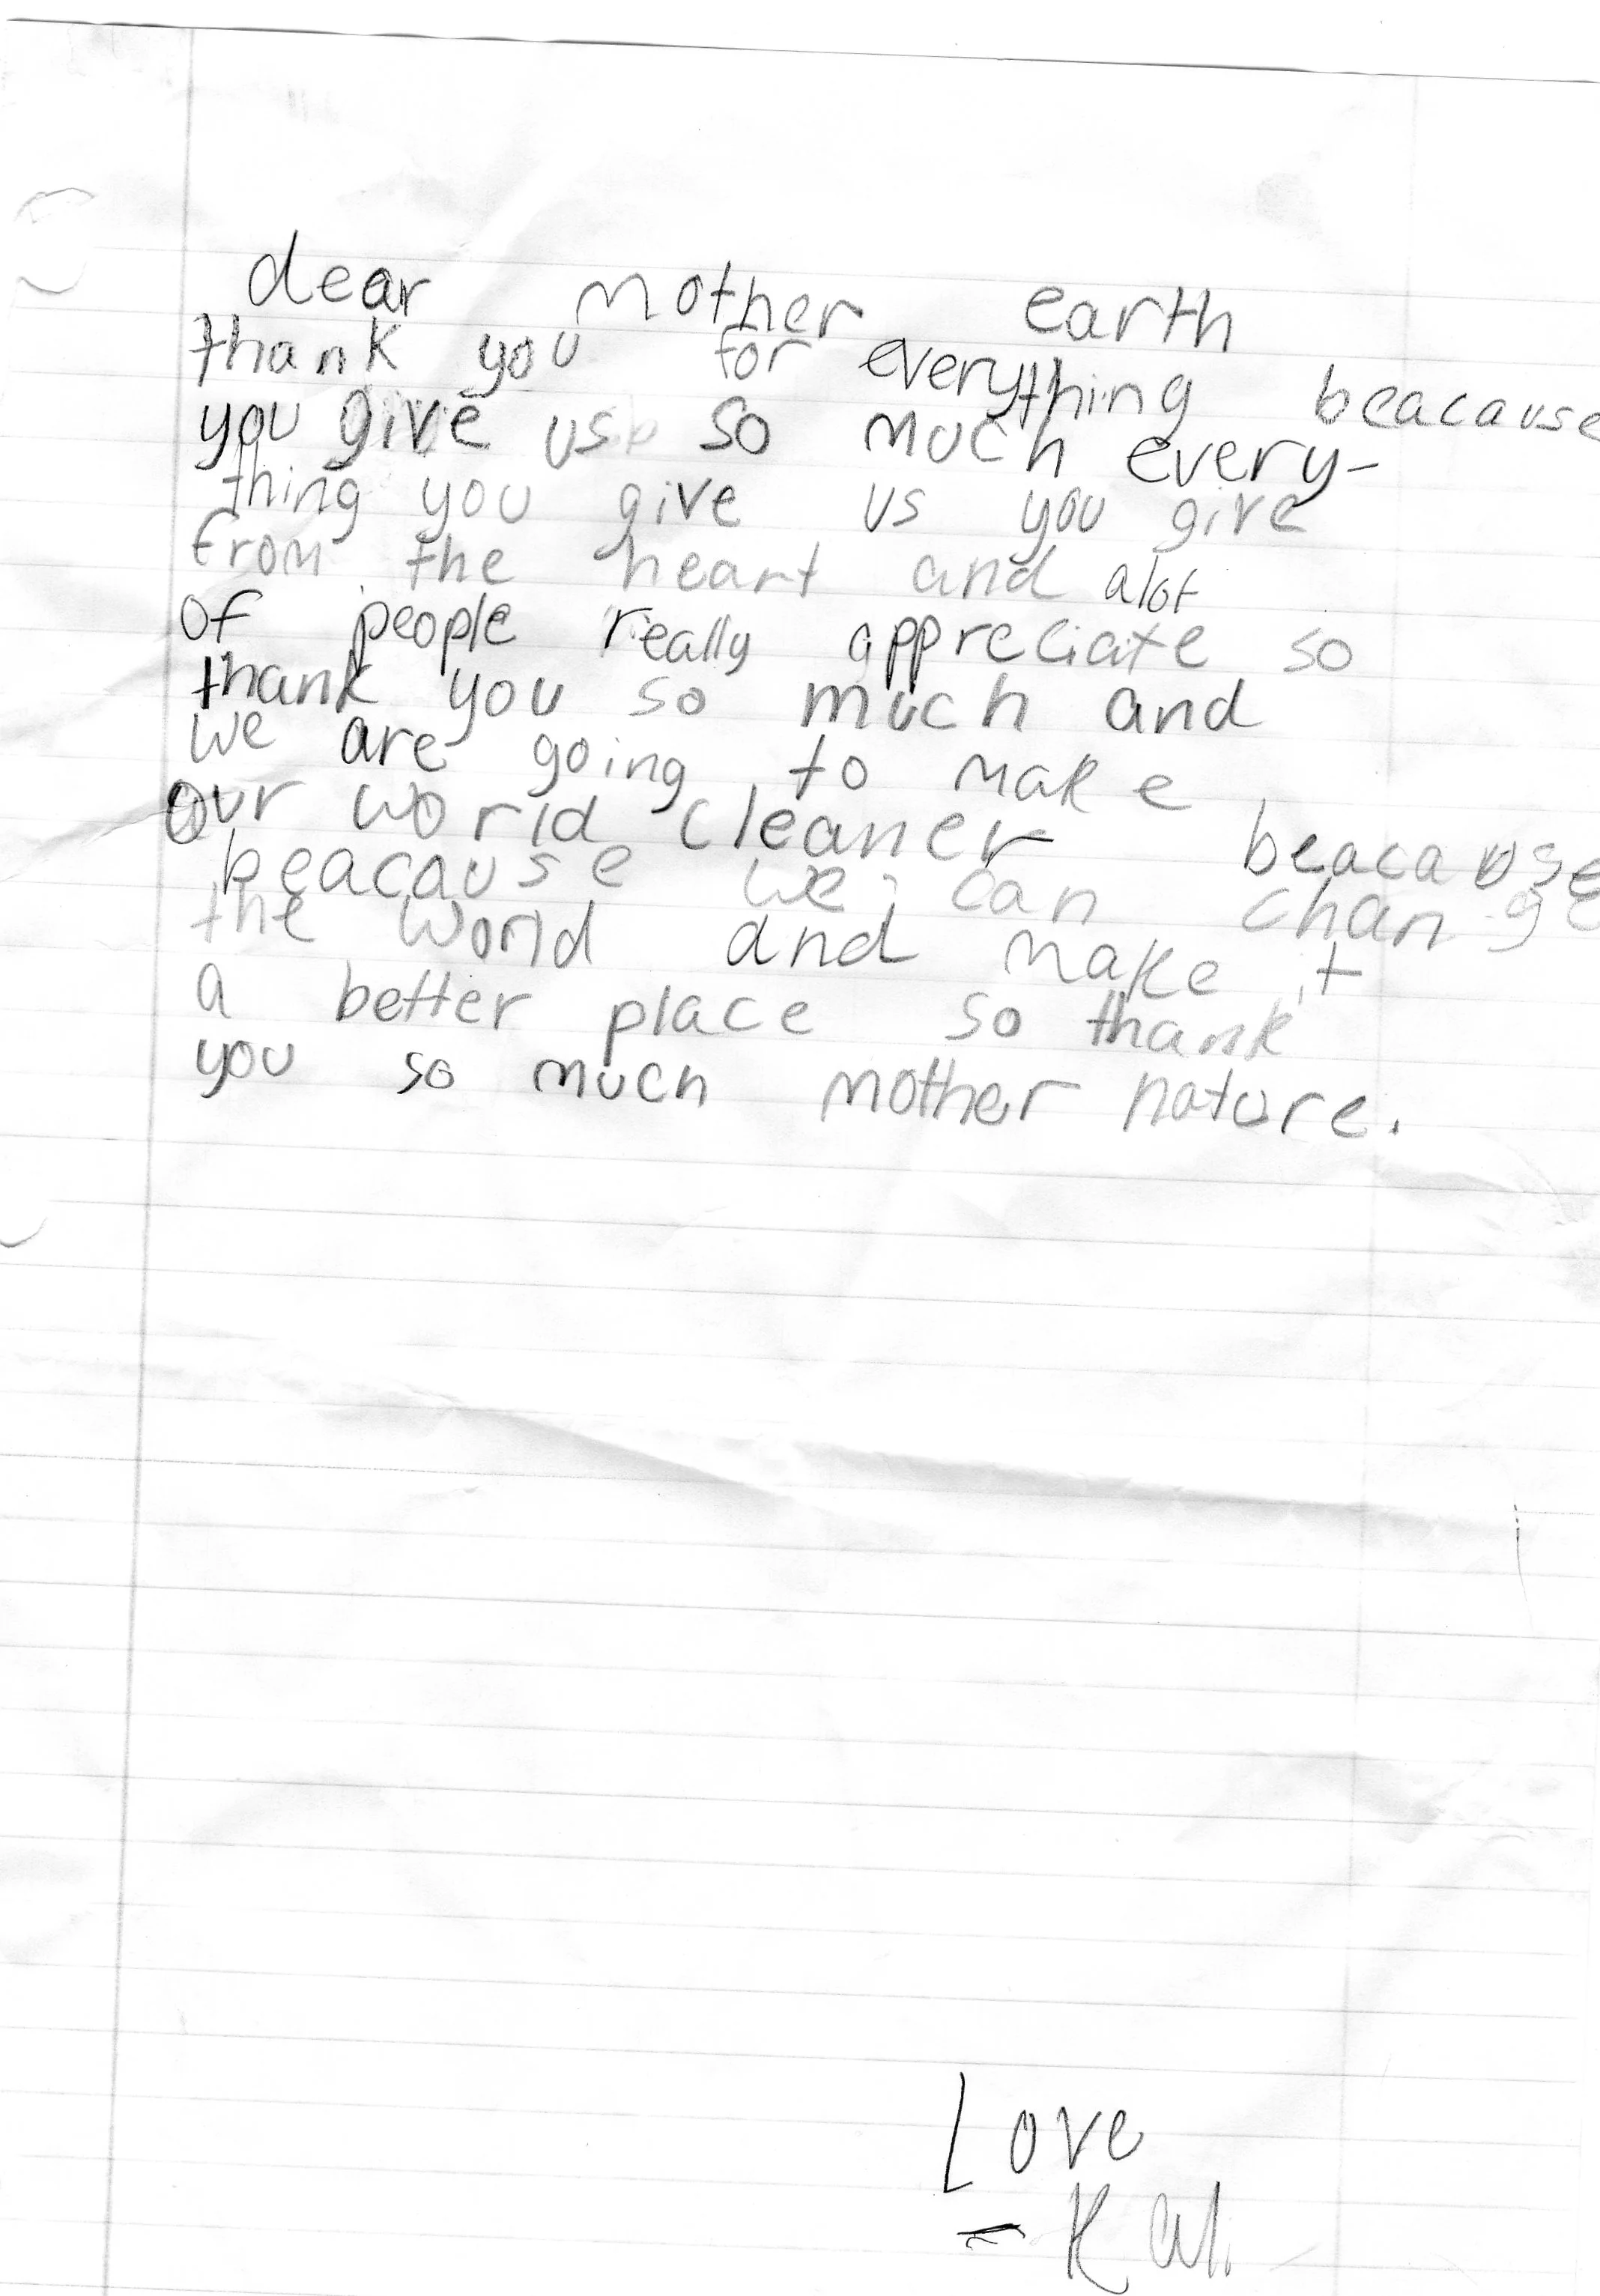 dear mother earth
thank you for everything beacause
you give us so much every-
thing you give us you give
from the heart and alot
of people really appreciate so
thank you so much and
we are going to make
our world cleaner beacause
beacause we can change
the world and make it
a better place so thank
you so much mother nature.
Love